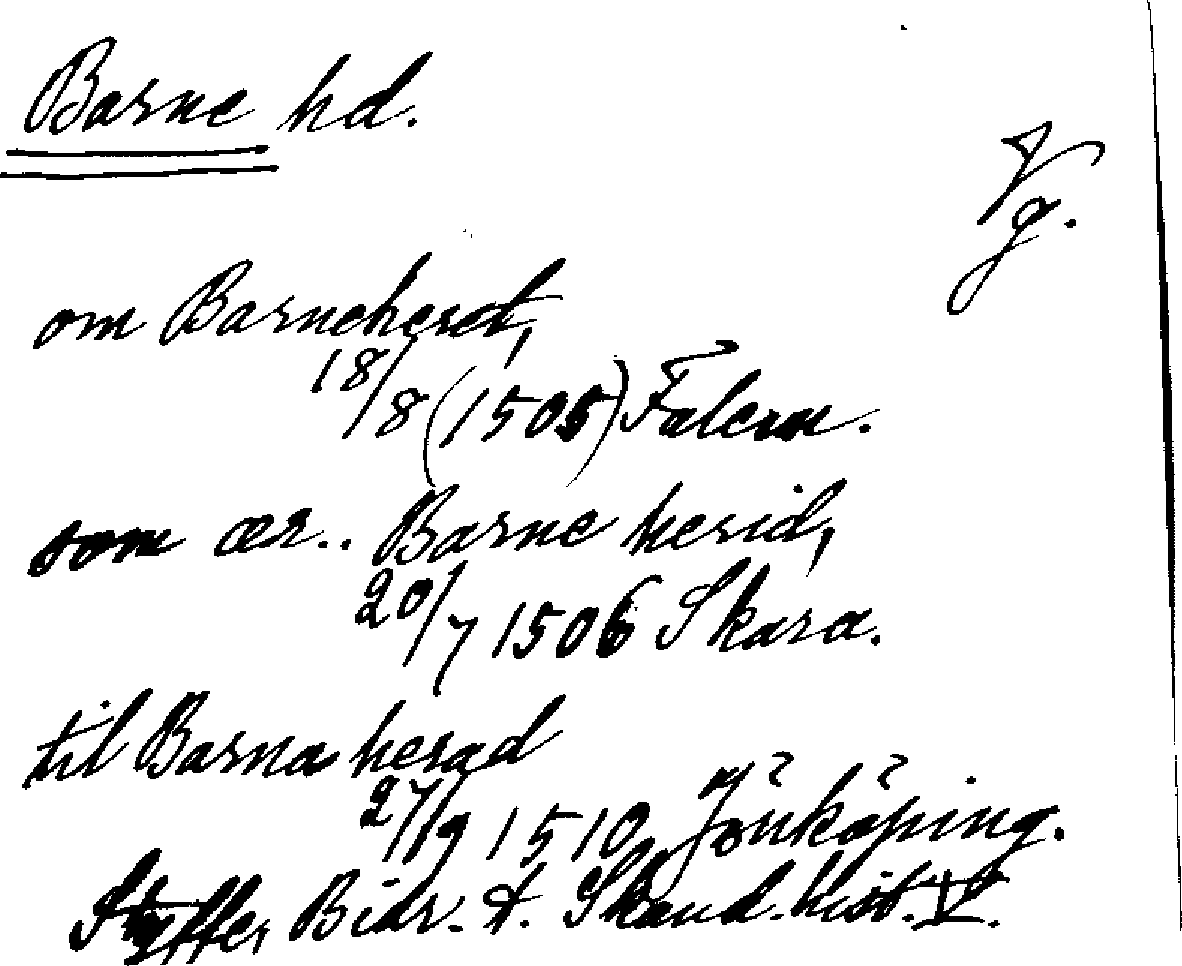 Barne hd.
Vg.
om Barneheret,
18/8 (1505) Falem.
som ær.. Barne herid,
20/7 1506 Skara.
til Barna herad
27/9 1510 Jönköping.
Styffe, Bidr. t. Skand. hist. V.